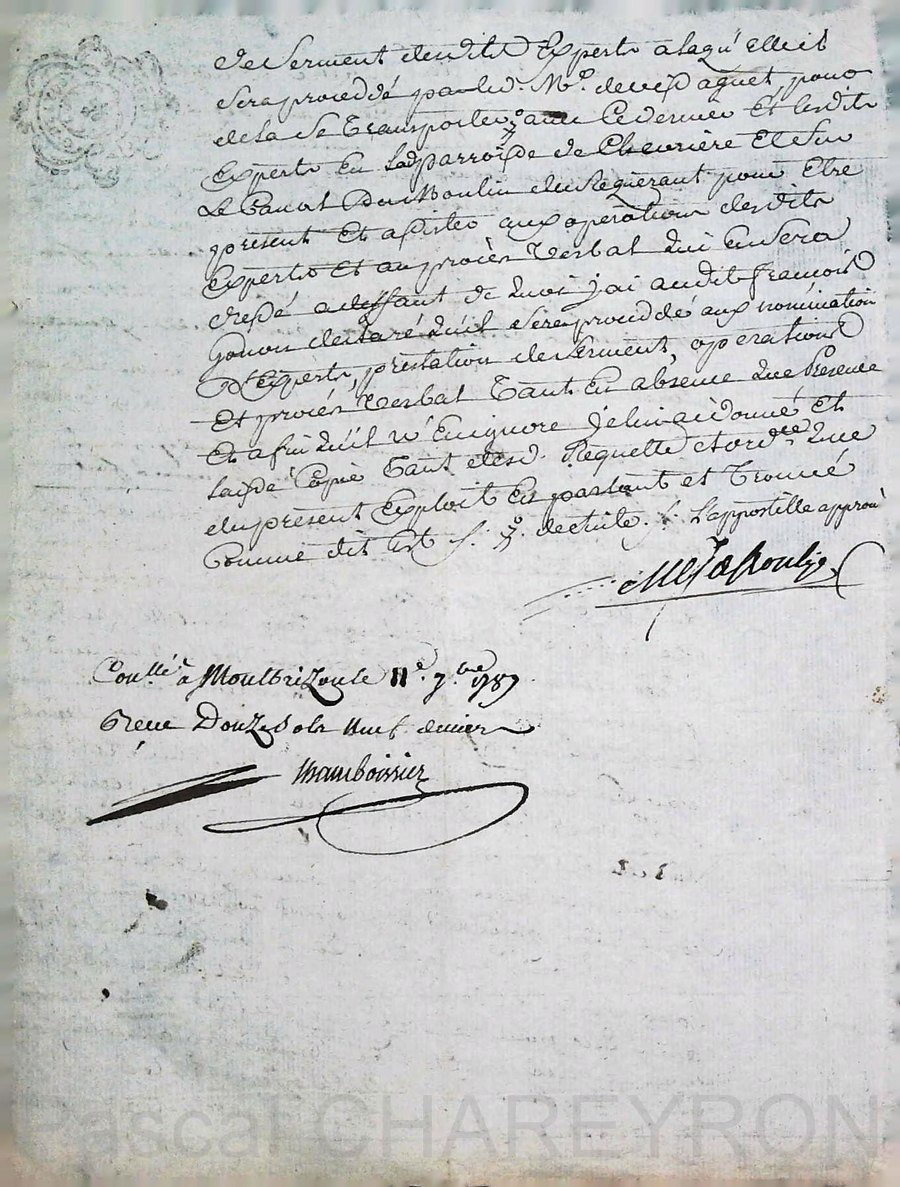 de serment desdits Experts a laquelle il
sera procedé par led. Mr. pour
de la se Transporter avec Ce dernier Et lesdits
Experts En lad parroisse de Chevrière Et sur
Le Canal Du Moulin du Requerant pour Etre
present Et assister aux opérations desdits
Experts Et au procès Verbal qui En sera
dressé a deffaut de quoi j'ai audit françois
gonon declaré qu'il sera procedé aux nomination
D'Experts, prestation de serment, operations
Et procés Verbal Tant En absence que Presence
Et afin qu'il n'En ignore je lui ai donné Et
laissé Copie Tant desd. Requette et ordce que
du present Exploit En parlant et Trouvé
Comme dit Est L'appostille approu
Conllé a Montbrizon le 11e. 7bre 1787
Reçu Douze sols neuf deniers
Pascal CHAREYRON